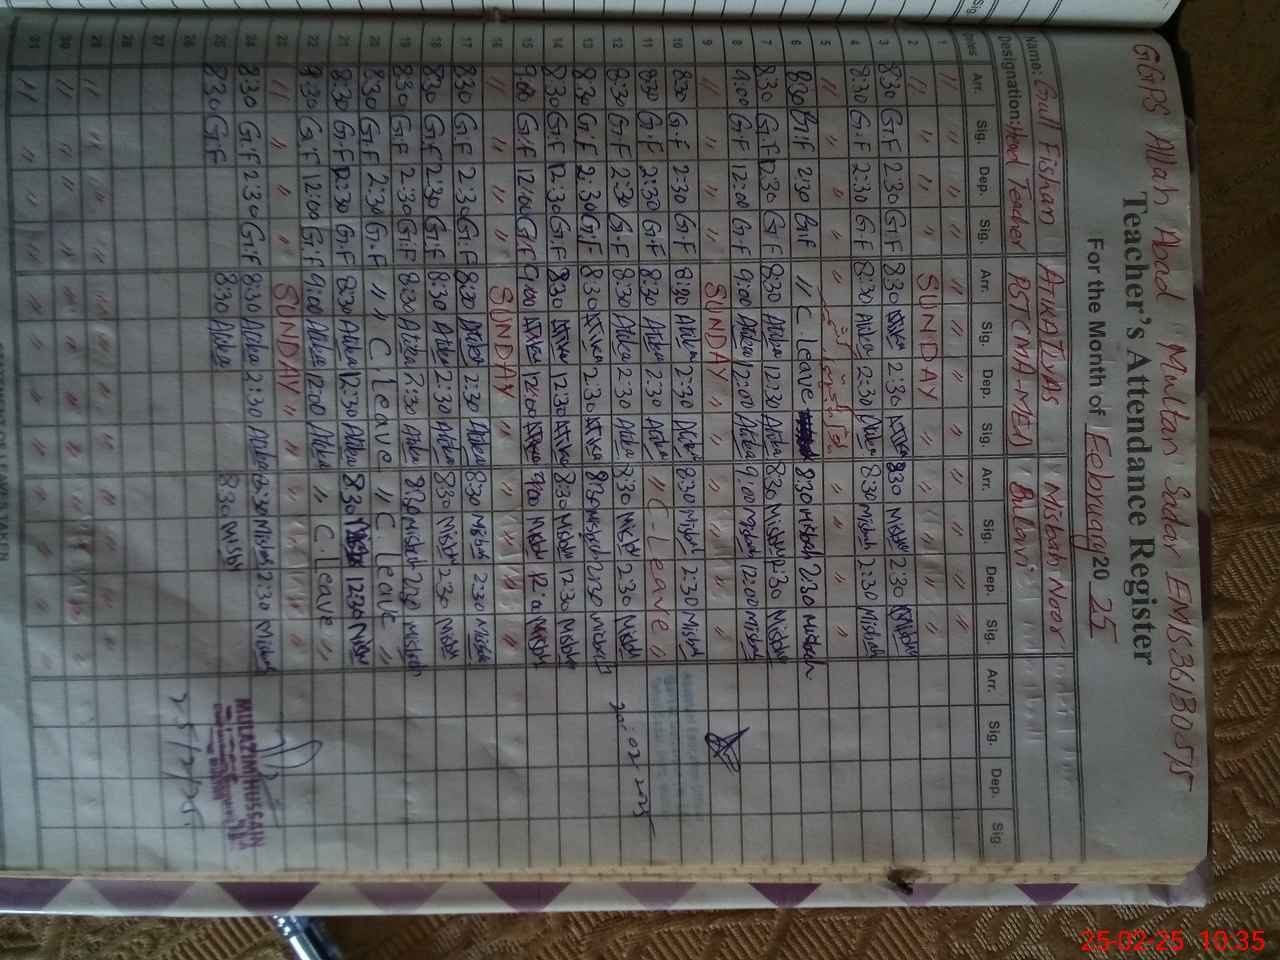 GGPS Allah Abad Multan Sadar EMIS 36130515
Teacher's Attendance Register
For the Month of February 20 25
Name: Gull Fishan ATIKA ILYAS Misbah Noor
Designation: Head Teacher PST (MA-MEd)
Dates Arr. Sig. Dep. Sig. Arr. Sig. Dep. Sig. Arr. Sig. Dep. Sig. Arr. Sig. Dep. Sig.
1 " " " " " " " " " " " "
2 " " " " SUNDAY " " " " " "
3 8:30 G.F 2:30 G.F 8:30 Atika 2:30 Atika 8:30 Misbah 2:30 Misbah
4 8:30 G.F 2:30 G.F 8:30 Atika 2:30 Atika 8:30 Misbah 2:30 Misbah
5 " " " " " " " "
6 8:30 G.F 2:30 G.F " C. Leave 8:30 Misbah 2:30 Misbah
7 8:30 G.F 12:30 G.F 8:30 Atika 12:30 Atika 8:30 Misbah 12:30 Misbah
8 9:00 G.F 12:00 G.F 9:00 Atika 12:00 Atika 9:00 Misbah 12:00 Misbah
9 " " " " SUNDAY " " " " " "
10 8:30 G.F 2:30 G.F 8:30 Atika 2:30 Atika 8:30 Misbah 2:30 Misbah
11 8:30 G.F 2:30 G.F 8:30 Atika 2:30 Atika " C-Leave "
12 8:30 G.F 2:30 G.F 8:30 Atika 2:30 Atika 8:30 Misbah 2:30 Misbah
13 8:30 G.F 2:30 G.F 8:30 Atika 2:30 Atika 8:30 Misbah 2:30 Misbah
14 8:30 G.F 12:30 G.F 8:30 Atika 12:30 Atika 8:30 Misbah 12:30 Misbah
15 9:00 G.F 12:00 G.F 9:00 Atika 12:00 Atika 9:00 Misbah 12:00 Misbah
16 " SUNDAY " " " " " "
17 8:30 G.F 2:30 G.F 8:30 Atika 2:30 Atika 8:30 Misbah 2:30 Misbah
18 8:30 G.F 2:30 G.F 8:30 Atika 2:30 Atika 8:30 Misbah 2:30 Misbah
19 8:30 G.F 2:30 G.F 8:30 Atika 2:30 Atika 8:30 Misbah 2:30 Misbah
20 8:30 G.F 2:30 G.F " C. Leave " C. Leave "
21 8:30 G.F 12:30 G.F 8:30 Atika 12:30 Atika 8:30 Misbah 12:30 Misbah
22 9:30 G.F 12:00 G.F 9:00 Atika 12:00 Atika " C. Leave "
23 " " " " SUNDAY " " " " " "
24 8:30 G.F 2:30 G.F 8:30 Atika 2:30 Atika 8:30 Misbah 2:30 Misbah
25 8:30 G.F 8:30 Atika 8:30 Misbah
26
27
28
29 " " " " " " " " " " " "
30 " " " " " " " " " " " "
31 " " " " " " " " " " " "
MULAZIM HUSSAIN
25/2/25
25-02-25 10:35